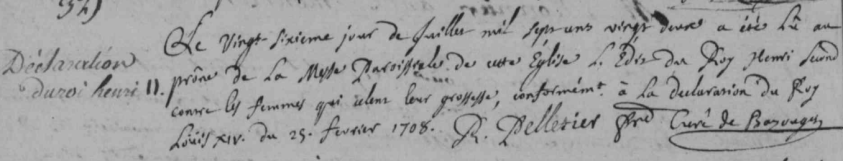 52)
Déclaration
du roi henri II.
Le vingt sixieme jour de Juillet mil sept cens vingt deux a été lû au
prône de La Messe Paroissiale de cette Église L'Edit du Roy Henri second
contre les femmes qui celent leur grossesse, conformém.t à La Declaration du Roy
Louis XIV. du 25. fevrier 1708. R. Pelletier Prd Curé de Bazouges